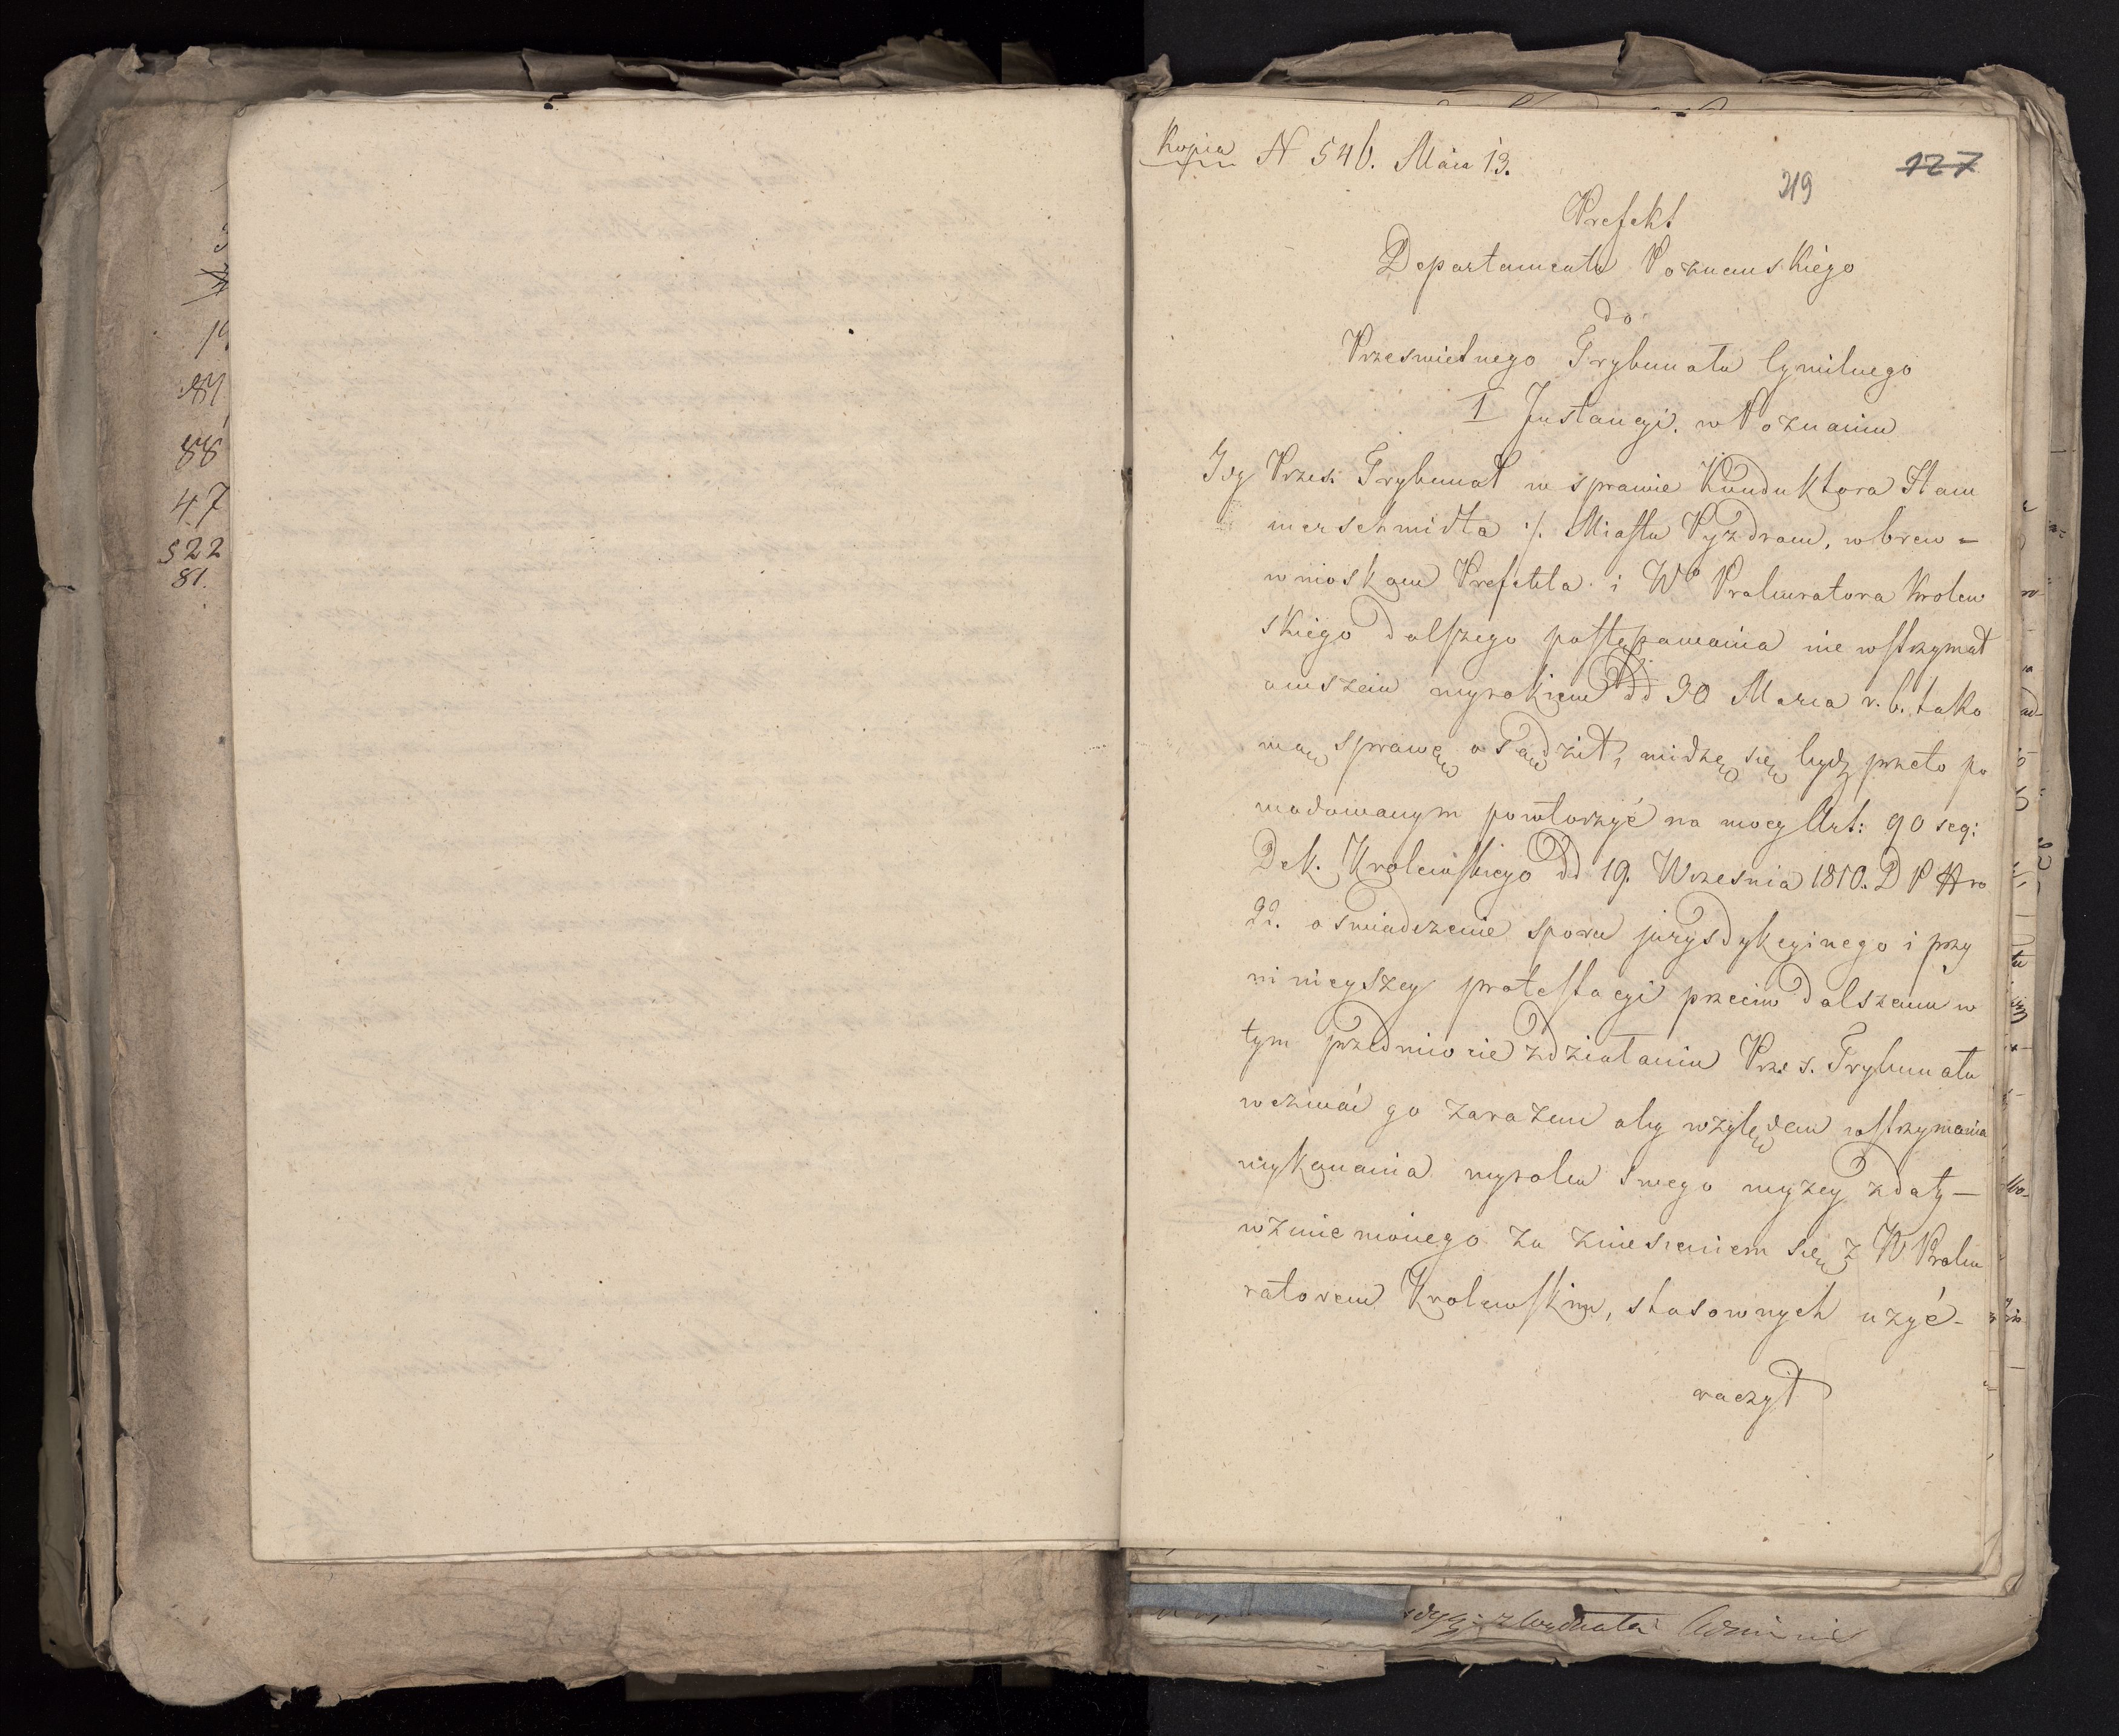 19
84
88
47
522
81.
Kopia N 546. Maia 13.
219
127
Prefekt
Departamentu Poznanskiego
do
Przeswietnego Trybunatu Cywilnego
I Instancyi. w Poznaniu
Przes: Trybunał w sprawie Konduktora Ham
merschmidta :/. Miastu Pyzdrom, wbrew =
wnioskom Prefekta i Wo Prokuratora Krolew
skiego dalszego postępowania nie wstrzymał
owszem wyrokiem dd 30 Marca r. b. tako
wą sprawę osądził, widzę się bydź przeto po
wodowanym powtorzyć na mocy Art: 90 seq:
Dek. Krolewskiego dd 19. Wrzesnia 1810. D P Nro
22. oswiadczenie sporu jurysdykcyinego i przy
ninieyszey protestacyi przeciw dalszemu w
tym przedmiocie działaniu Przes. Trybunatu
wezwać go zarazem aby względem wstrzymania
wykonania wyroku swego wyzey zdaty —
wzmienionego za zniesieniem się z W Proku
ratorem Krolewskim, stosownych uzyć -
raczył